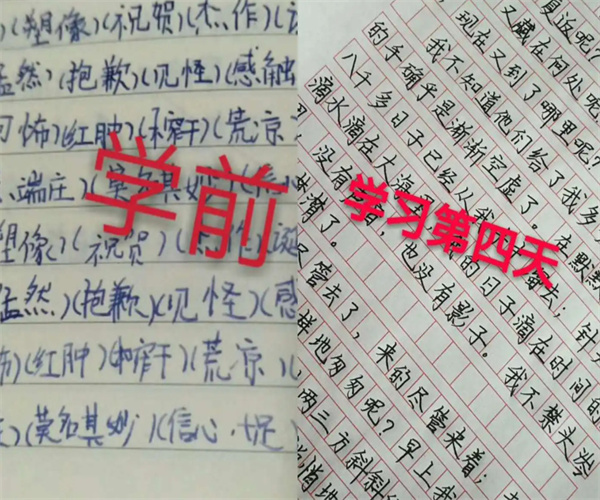 )(塑像)(祝贺)(杰作)(
然)(抱歉)(见怪)(感触
怖)(红肿)(荒凉
端庄)(莫名其妙)(信心
塑像)(祝贺)(杰作)(诞
然)(抱歉)(见怪)(感
怖)(红肿)(荒凉)(
)(莫名其妙)(信心十足
学前
复返呢?
又藏在何处呢
现在又到了哪里呢?
我不知道他们给了我多
的手确乎是渐渐空虚了。在默默
八千多日子已经从我手中溜去;针
滴水滴在大海里,我的日子滴在时间的
没有声音,也没有影子。我不禁头涔
潸了。
管去了,来的尽管来着;
样地匆匆呢?早上我
两三方斜斜
学习第四天